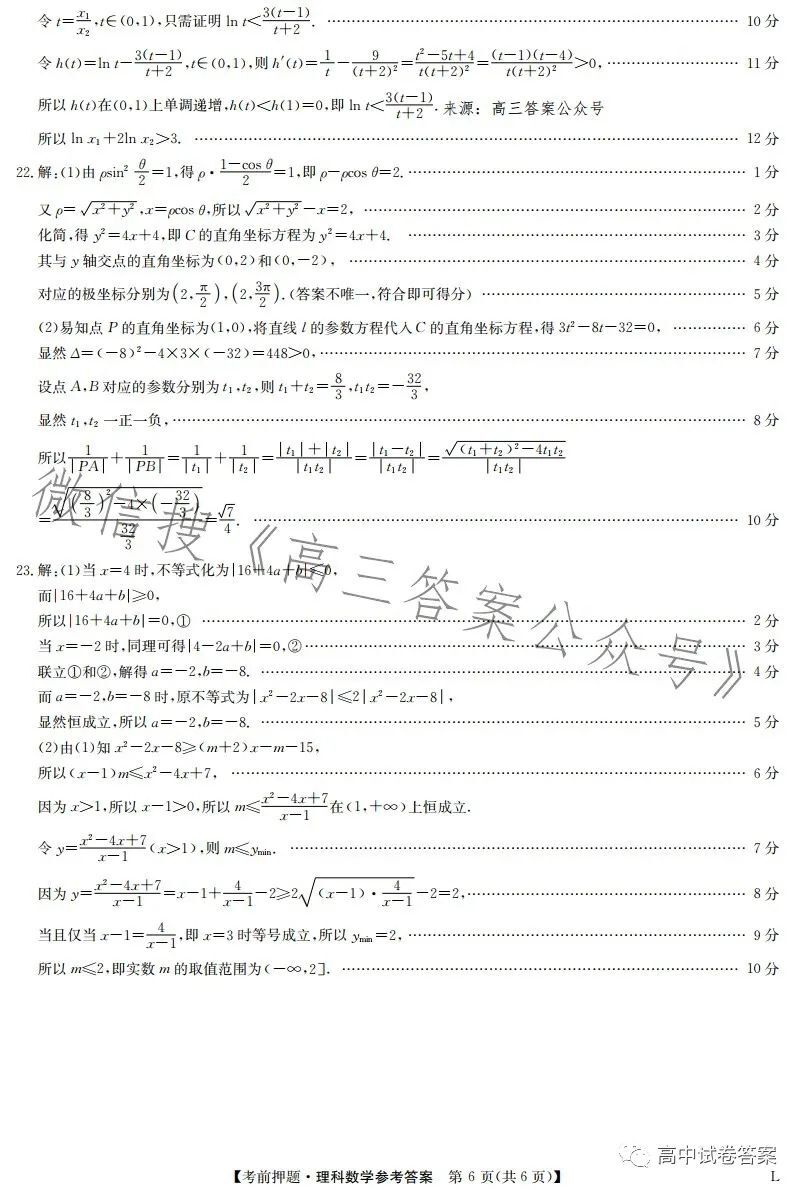 令t=x₁/x₂,t∈(0,1),只需证明 ln t<3(t-1)/(t+2). ………… 10分
令h(t)=ln t-3(t-1)/(t+2),t∈(0,1),则h′(t)=1/t-9/(t+2)²=(t²-5t+4)/(t(t+2)²)=(t-1)(t-4)/(t(t+2)²)>0, ………… 11分
所以h(t)在(0,1)上单调递增,h(t)<h(1)=0,即 ln t<3(t-1)/(t+2). 来源:高三答案公众号
所以 ln x₁+2ln x₂>3. ………… 12分
22.解:(1)由ρsin² θ/2=1,得ρ·(1-cos θ)/2=1,即ρ-ρcos θ=2. ………… 1分
又ρ=√(x²+y²),x=ρcos θ,所以√(x²+y²)-x=2, ………… 2分
化简,得y²=4x+4,即C的直角坐标方程为y²=4x+4. ………… 3分
其与y轴交点的直角坐标为(0,2)和(0,-2), ………… 4分
对应的极坐标分别为(2,π/2),(2,3π/2).(答案不唯一,符合即可得分) ………… 5分
(2)易知点P的直角坐标为(1,0),将直线l的参数方程代入C的直角坐标方程,得3t²-8t-32=0, ………… 6分
显然Δ=(-8)²-4×3×(-32)=448>0, ………… 7分
设点A,B对应的参数分别为t₁,t₂,则t₁+t₂=8/3,t₁t₂=-32/3,
显然t₁,t₂一正一负, ………… 8分
所以1/|PA|+1/|PB|=1/|t₁|+1/|t₂|=(|t₁|+|t₂|)/|t₁t₂|=|t₁-t₂|/|t₁t₂|=√((t₁+t₂)²-4t₁t₂)/|t₁t₂|
=√((8/3)²-4×(-32/3))/(32/3)=√7/4. ………… 10分
23.解:(1)当x=4时,不等式化为|16+4a+b|≤0,
而|16+4a+b|≥0,
所以|16+4a+b|=0,① ………… 2分
当x=-2时,同理可得|4-2a+b|=0,② ………… 3分
联立①和②,解得a=-2,b=-8. ………… 4分
而a=-2,b=-8时,原不等式为|x²-2x-8|≤2|x²-2x-8|,
显然恒成立,所以a=-2,b=-8. ………… 5分
(2)由(1)知x²-2x-8≥(m+2)x-m-15,
所以(x-1)m≤x²-4x+7, ………… 6分
因为x>1,所以x-1>0,所以m≤(x²-4x+7)/(x-1)在(1,+∞)上恒成立.
令y=(x²-4x+7)/(x-1)(x>1),则m≤yₘᵢₙ. ………… 7分
因为y=(x²-4x+7)/(x-1)=x-1+4/(x-1)-2≥2√((x-1)·4/(x-1))-2=2, ………… 8分
当且仅当x-1=4/(x-1),即x=3时等号成立,所以yₘᵢₙ=2, ………… 9分
所以m≤2,即实数m的取值范围为(-∞,2]. ………… 10分
微信搜《高三答案公众号》
高中试卷答案
【考前押题·理科数学参考答案 第6页(共6页)】 L